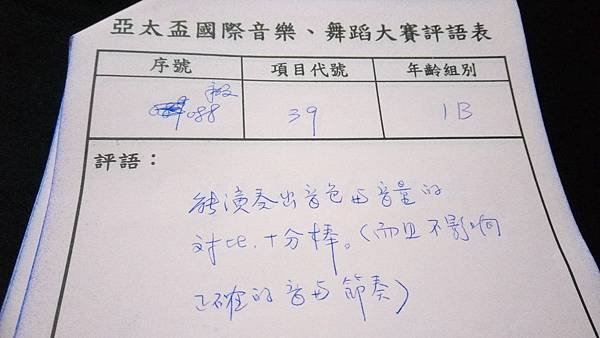 亞太盃國際音樂、舞蹈大賽評語表
序號 項目代號 年齡組別
088 39 1B
評語：
能演奏出音色与音量的
对比，十分棒。（而且不影响
正確的音与節奏）